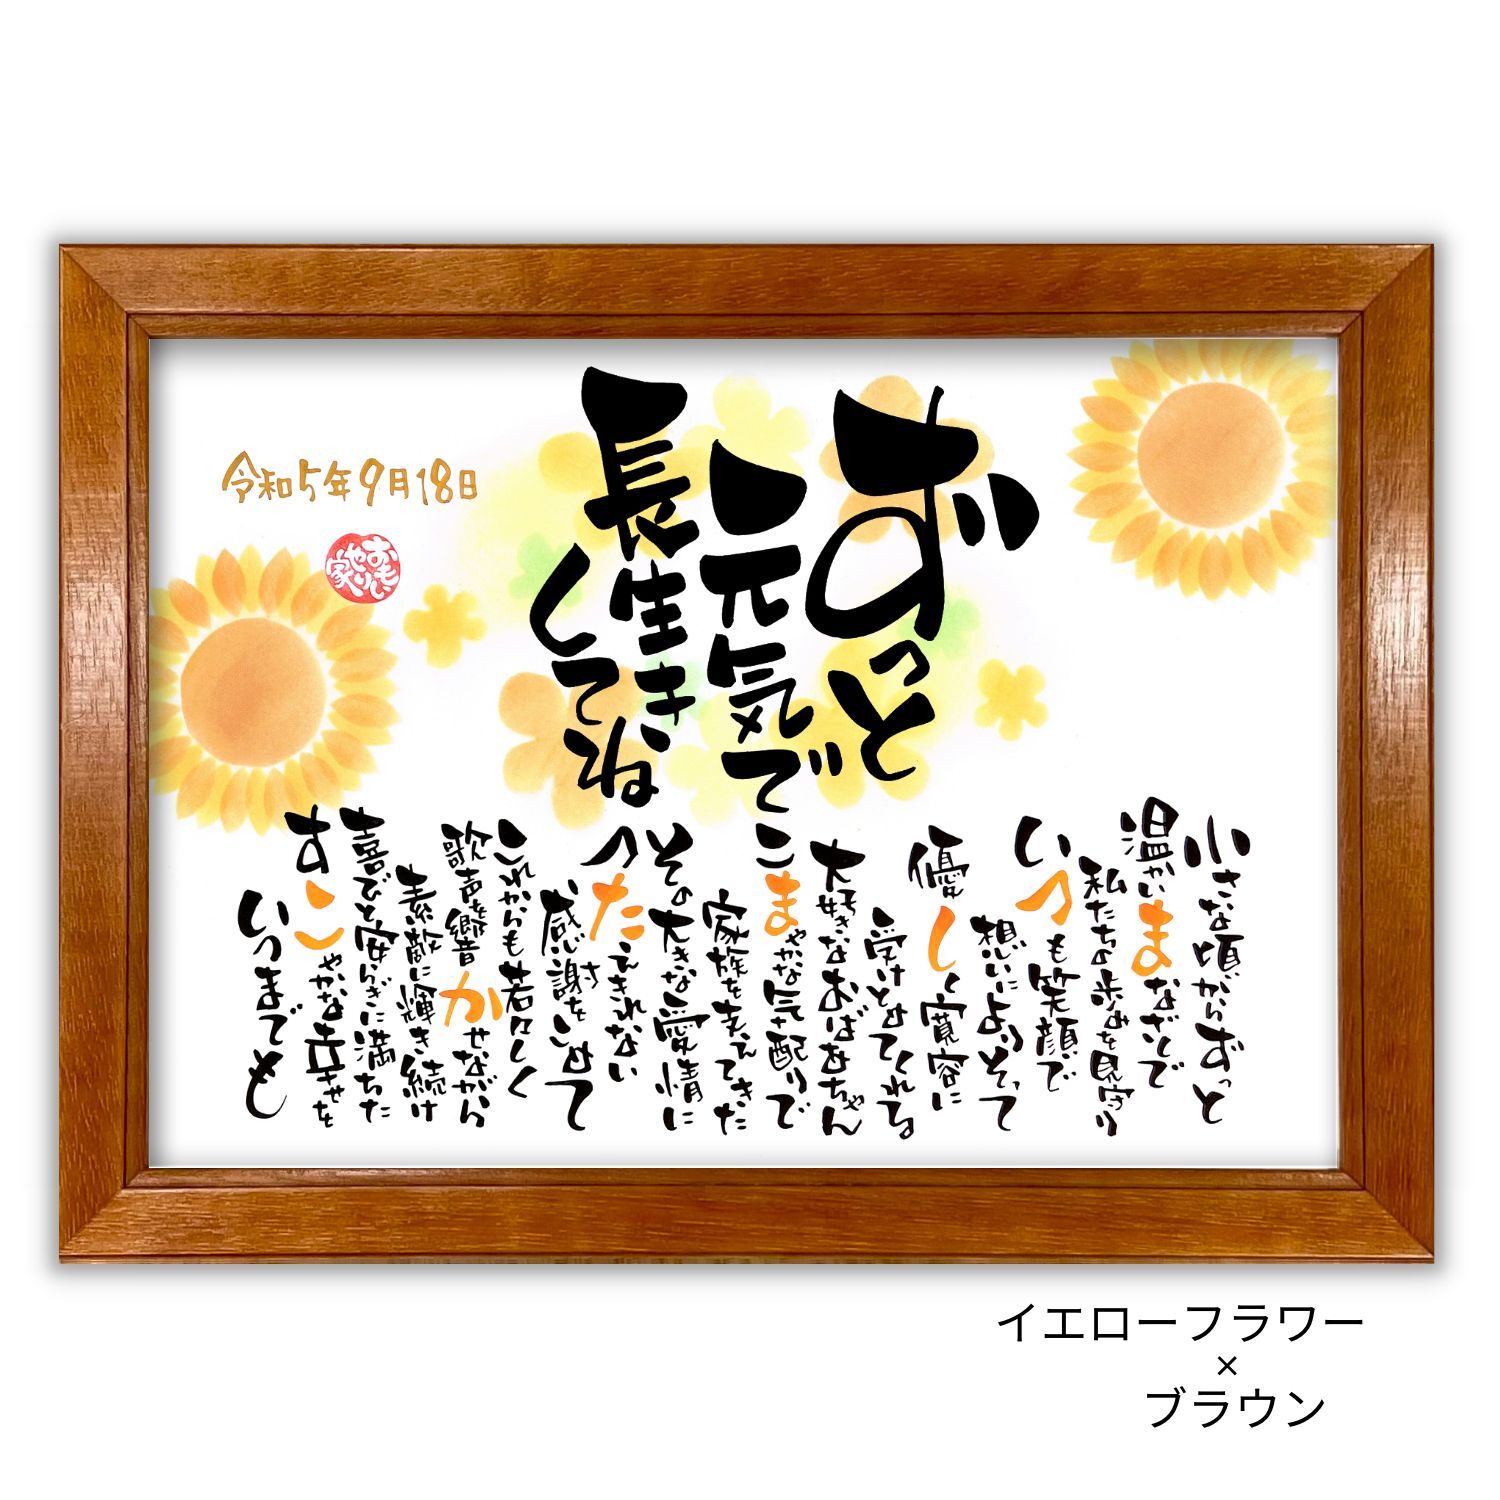 ずっと
元気で
長生き
してね
令和5年9月18日
おもいやり家
小さな頃からずっと
温かいまなざしで
私たちの歩みを見守り
いつも笑顔で
想いによりそって
優しく寛容に
受けとめてくれる
大好きなおばあちゃん
こまやかな気配りで
家族を支えてきた
その大きな愛情に
つたえきれない
感謝をこめて
これからも若々しく
歌声を響かせながら
素敵に輝き続け
喜びと安らぎに満ちた
すこやかな幸せを
いつまでも
イエローフラワー
×
ブラウン